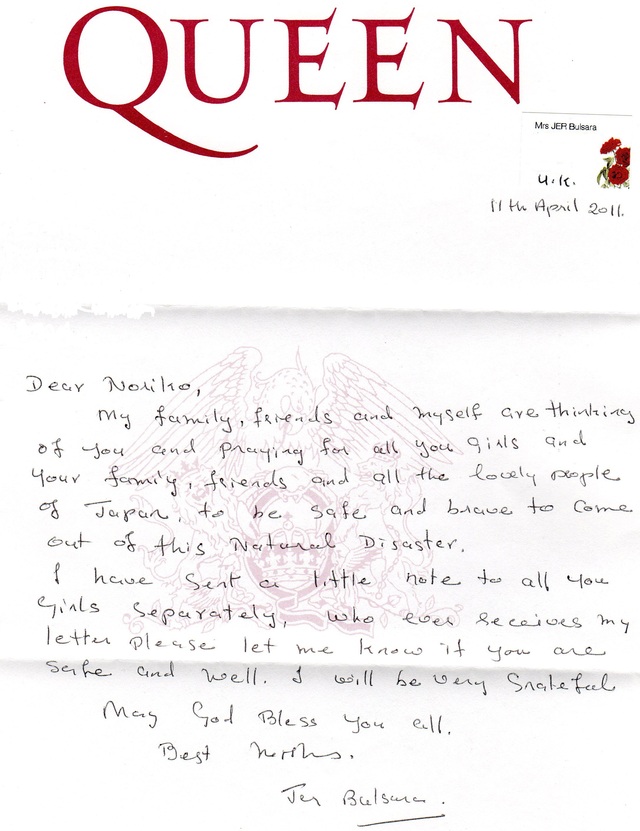 QUEEN
Mrs JER Bulsara
U.K.
11th April 2011.
Dear Noriko,
My family, friends and myself are thinking
of you and praying for all you girls and
your family, friends and all the lovely people
of Japan, to be safe and brave to come
out of this Natural Disaster.
I have sent a little note to all you
Girls separately, who ever receives my
letter please let me know if you are
safe and well. I will be very grateful
May God Bless you all.
Best Wishes.
Jer Bulsara.